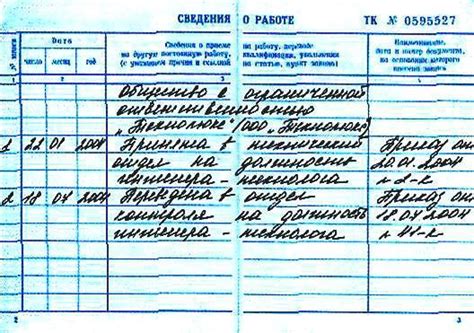 СВЕДЕНИЯ О РАБОТЕ ТК № 0595527
Дата
Сведения о приеме на работу, переводе Наименование,
на другую постоянную работу, квалификации, увольнении дата и номер документа,
(с указанием причин и ссылкой на статью, пункт закона) на основании которого
число месяц год внесена запись
1 2 3 4
Общество с ограниченной
ответственностью
„Технолюкс" (ООО „Технолюкс")
1 22 01 2004 Принята в технический Приказ от
отдел на должность 20.01.2004
инженера - технолога № 2-к
2 18 04 2004 Переведена в отдел Приказ от
контроля на должность 18.04.2004
инженера - технолога № 11-к
2 3